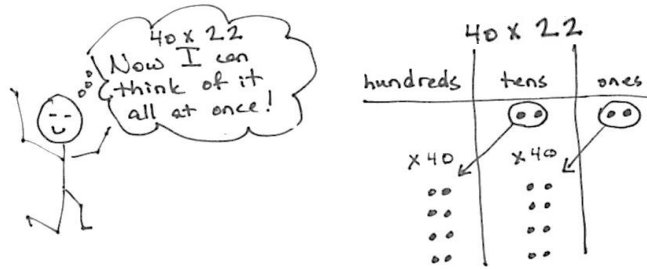 40 x 22
Now I can
think of it
all at once!
40 x 22
hundreds tens ones
x 40 x 40